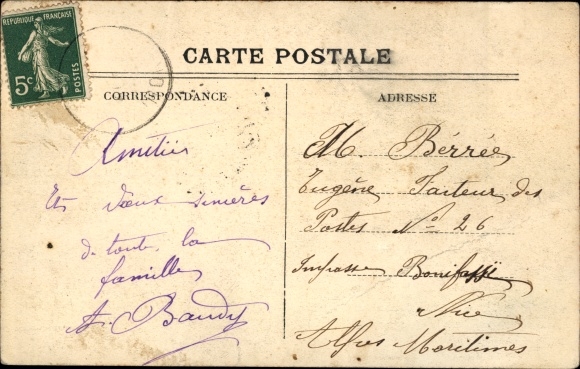 RÉPUBLIQUE FRANÇAISE
5c
POSTES
CARTE POSTALE
CORRESPONDANCE
Amitiés
Et Vœux sincères
de toute la
famille
A. Baudy
ADRESSE
M. Bérrée
Eugène Facteur des
Postes No 26
Impasse Bonifassi
Nice
Alpes Maritimes